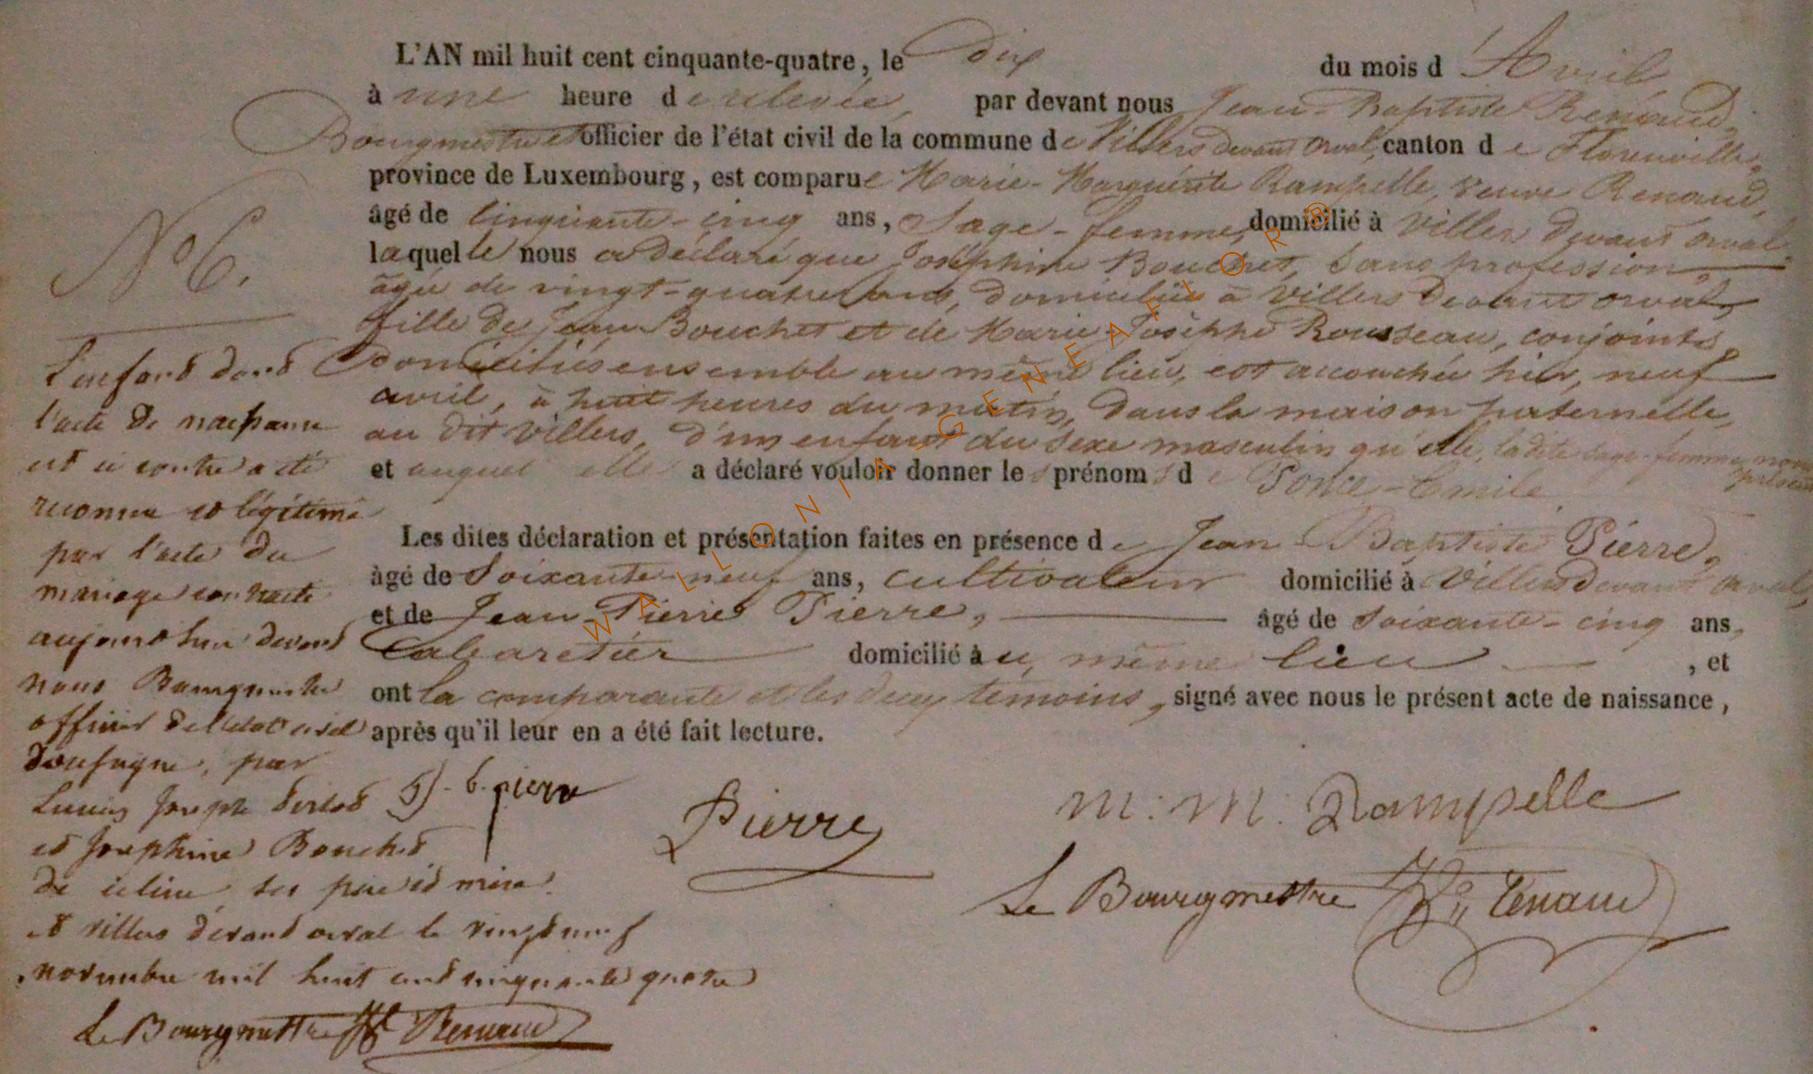 L'AN mil huit cent cinquante-quatre, le dix du mois d'Avril
à une heure de relevée, par devant nous Jean-Baptiste Renaud,
Bourgmestre et officier de l'état civil de la commune de Villers devant Orval, canton de Florenville,
province de Luxembourg, est comparue Marie-Marguerite Rampelle, veuve Renaud,
âgé de cinquante-cinq ans, Sage-femme, domicilié à Villers devant Orval
laquelle nous a déclaré que Joséphine Bouchet, sans profession,
âgée de vingt-quatre ans, domiciliée à Villers devant orval,
fille de Jean Bouchet et de Marie-Josèphe Rousseau, conjoints,
domiciliés ensemble au même lieu, est accouchée hier, neuf
avril, à huit heures du matin, dans la maison paternelle,
au dit Villers, d'un enfant du sexe masculin qu'elle, la dite sage-femme, nous
et auquel elle a déclaré vouloir donner les prénoms de Ponce-Emile
Les dites déclaration et présentation faites en présence de Jean-Baptiste Pierre,
âgé de soixante-neuf ans, cultivateur domicilié à Villers devant orval,
et de Jean-Pierre Pierre, âgé de soixante-cinq ans,
Cabaretier domicilié au même lieu, et
ont la comparante et les deux témoins, signé avec nous le présent acte de naissance,
après qu'il leur en a été fait lecture.
Pierre
M: M: Rampelle
Le Bourgmestre Renaud
No 6.
L'enfant dont
l'acte de naissance
est ci contre a été
reconnu et légitimé
par l'acte du
mariage contracté
aujourd'hui devant
nous Bourgmestre
officier de l'état civil
par
Joseph
et Joséphine Bouchet
de ce lieu, ses père et mère.
à villers devant orval le vingt neuf
novembre mil huit cent cinquante quatre
Le Bourgmestre Renaud
WALLONIA GENEAFLOR8